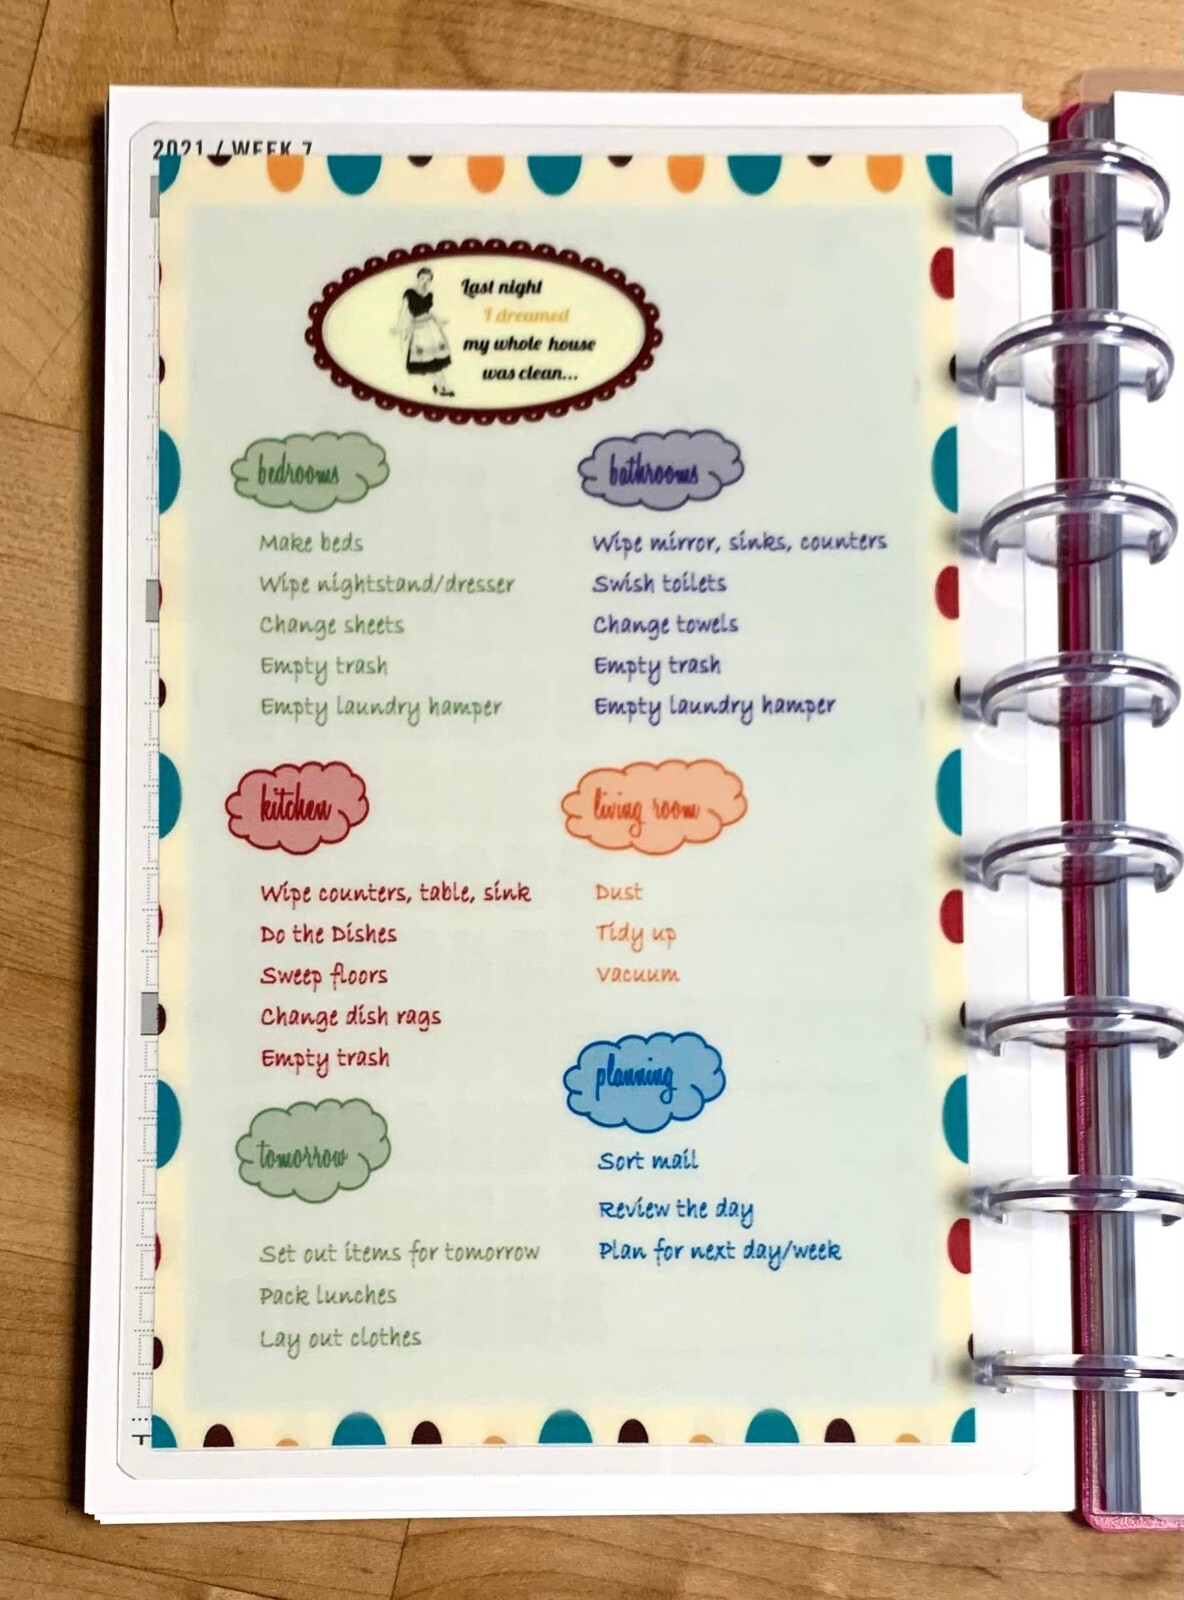 2021 / WEEK 7
Last night
I dreamed
my whole house
was clean...
bedrooms
Make beds
Wipe nightstand/dresser
Change sheets
Empty trash
Empty laundry hamper
bathrooms
Wipe mirror, sinks, counters
Swish toilets
Change towels
Empty trash
Empty laundry hamper
kitchen
Wipe counters, table, sink
Do the Dishes
Sweep floors
Change dish rags
Empty trash
living room
Dust
Tidy up
Vacuum
tomorrow
Set out items for tomorrow
Pack lunches
Lay out clothes
planning
Sort mail
Review the day
Plan for next day/week